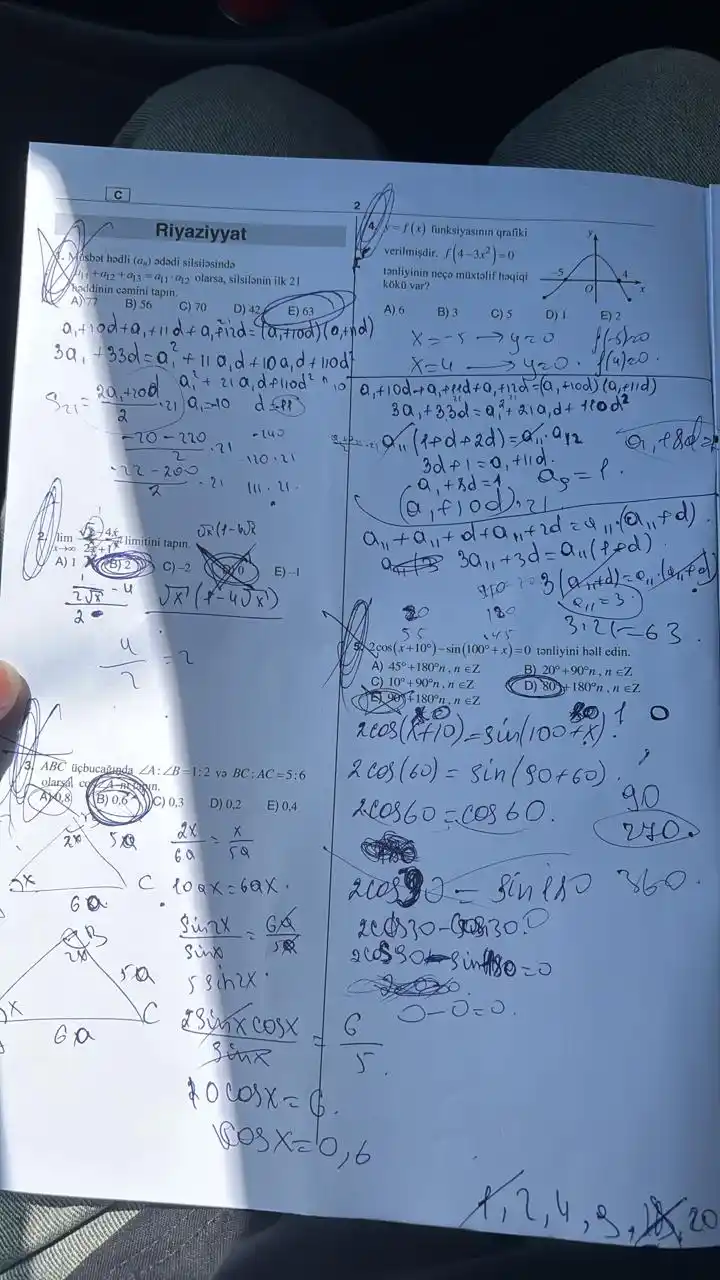 C
2
Riyaziyyat
1. Müsbət hədli (aₙ) ədədi silsiləsində
a₁₁+a₁₂+a₁₃=a₁₁·a₁₂ olarsa, silsilənin ilk 21
həddinin cəmini tapın.
A) 77 B) 56 C) 70 D) 42 E) 63
a₁+10d+a₁+11d+a₁+12d=(a₁+10d)(a₁+11d)
3a₁+33d=a₁²+11a₁d+10a₁d+110d²
a₁²+21a₁d+110d²
S₂₁=(2a₁+20d)/2·21 a₁=-10 d=
(-20-220)/2·21 -240
120·21
(-22-200)/2·21 111·21
2. lim x→∞ limitini tapın. √x(1-4√x
A) 1 B) 2 C) -2 D) 0 E) -1
√x(1-4√x)
4/2=2
3. ABC üçbucağında ∠A:∠B=1:2 və BC:AC=5:6
olarsa, cos∠A-nı tapın.
A) 0,8 B) 0,6 C) 0,3 D) 0,2 E) 0,4
2x 5a x C 6a
2x/6a=x/5a
10ax=6ax
B 2x 5a x C 6a
sin2x/sinx=6a/5a
5sin2x
2sinxcosx/sinx=6/5
10cosx=6.
cosx=0,6
4. y=f(x) funksiyasının qrafiki
verilmişdir. f(4-3x²)=0
tənliyinin neçə müxtəlif həqiqi
kökü var?
y -5 O 4 x
A) 6 B) 3 C) 5 D) 1 E) 2
x=-5→y=0 f(-5)=0
x=4→y=0. f(4)=0.
a₁+10d+a₁+11d+a₁+12d=(a₁+10d)(a₁+11d)
3a₁+33d=a₁²+21a₁d+110d²
a₁₁(1+d+2d)=a₁₁·a₁₂
3d+1=a₁+11d.
a₁+8d=1 a₉=1.
(a₁+10d)·21
a₁₁+a₁₁+d+a₁₁+2d=a₁₁·(a₁₁+d).
3a₁₁+3d=a₁₁(11+d)
3(a₁₁+d)=a₁₁·(a₁₁+d)
a₁₁=3
3·21=63
180
55 45
5. 2cos(x+10°)-sin(100°+x)=0 tənliyini həll edin.
A) 45°+180°n, n∈Z B) 20°+90°n, n∈Z
C) 10°+90°n, n∈Z D) 80°+180°n, n∈Z
E) 90°+180°n, n∈Z
2cos(x+10)=sin(100+x)
2cos(60)=sin(90+60).
2cos60=cos60.
90
270.
2cos90=sin180 360.
2cos90-sin180=0
0-0=0.
1, 2, 4, 9, 20